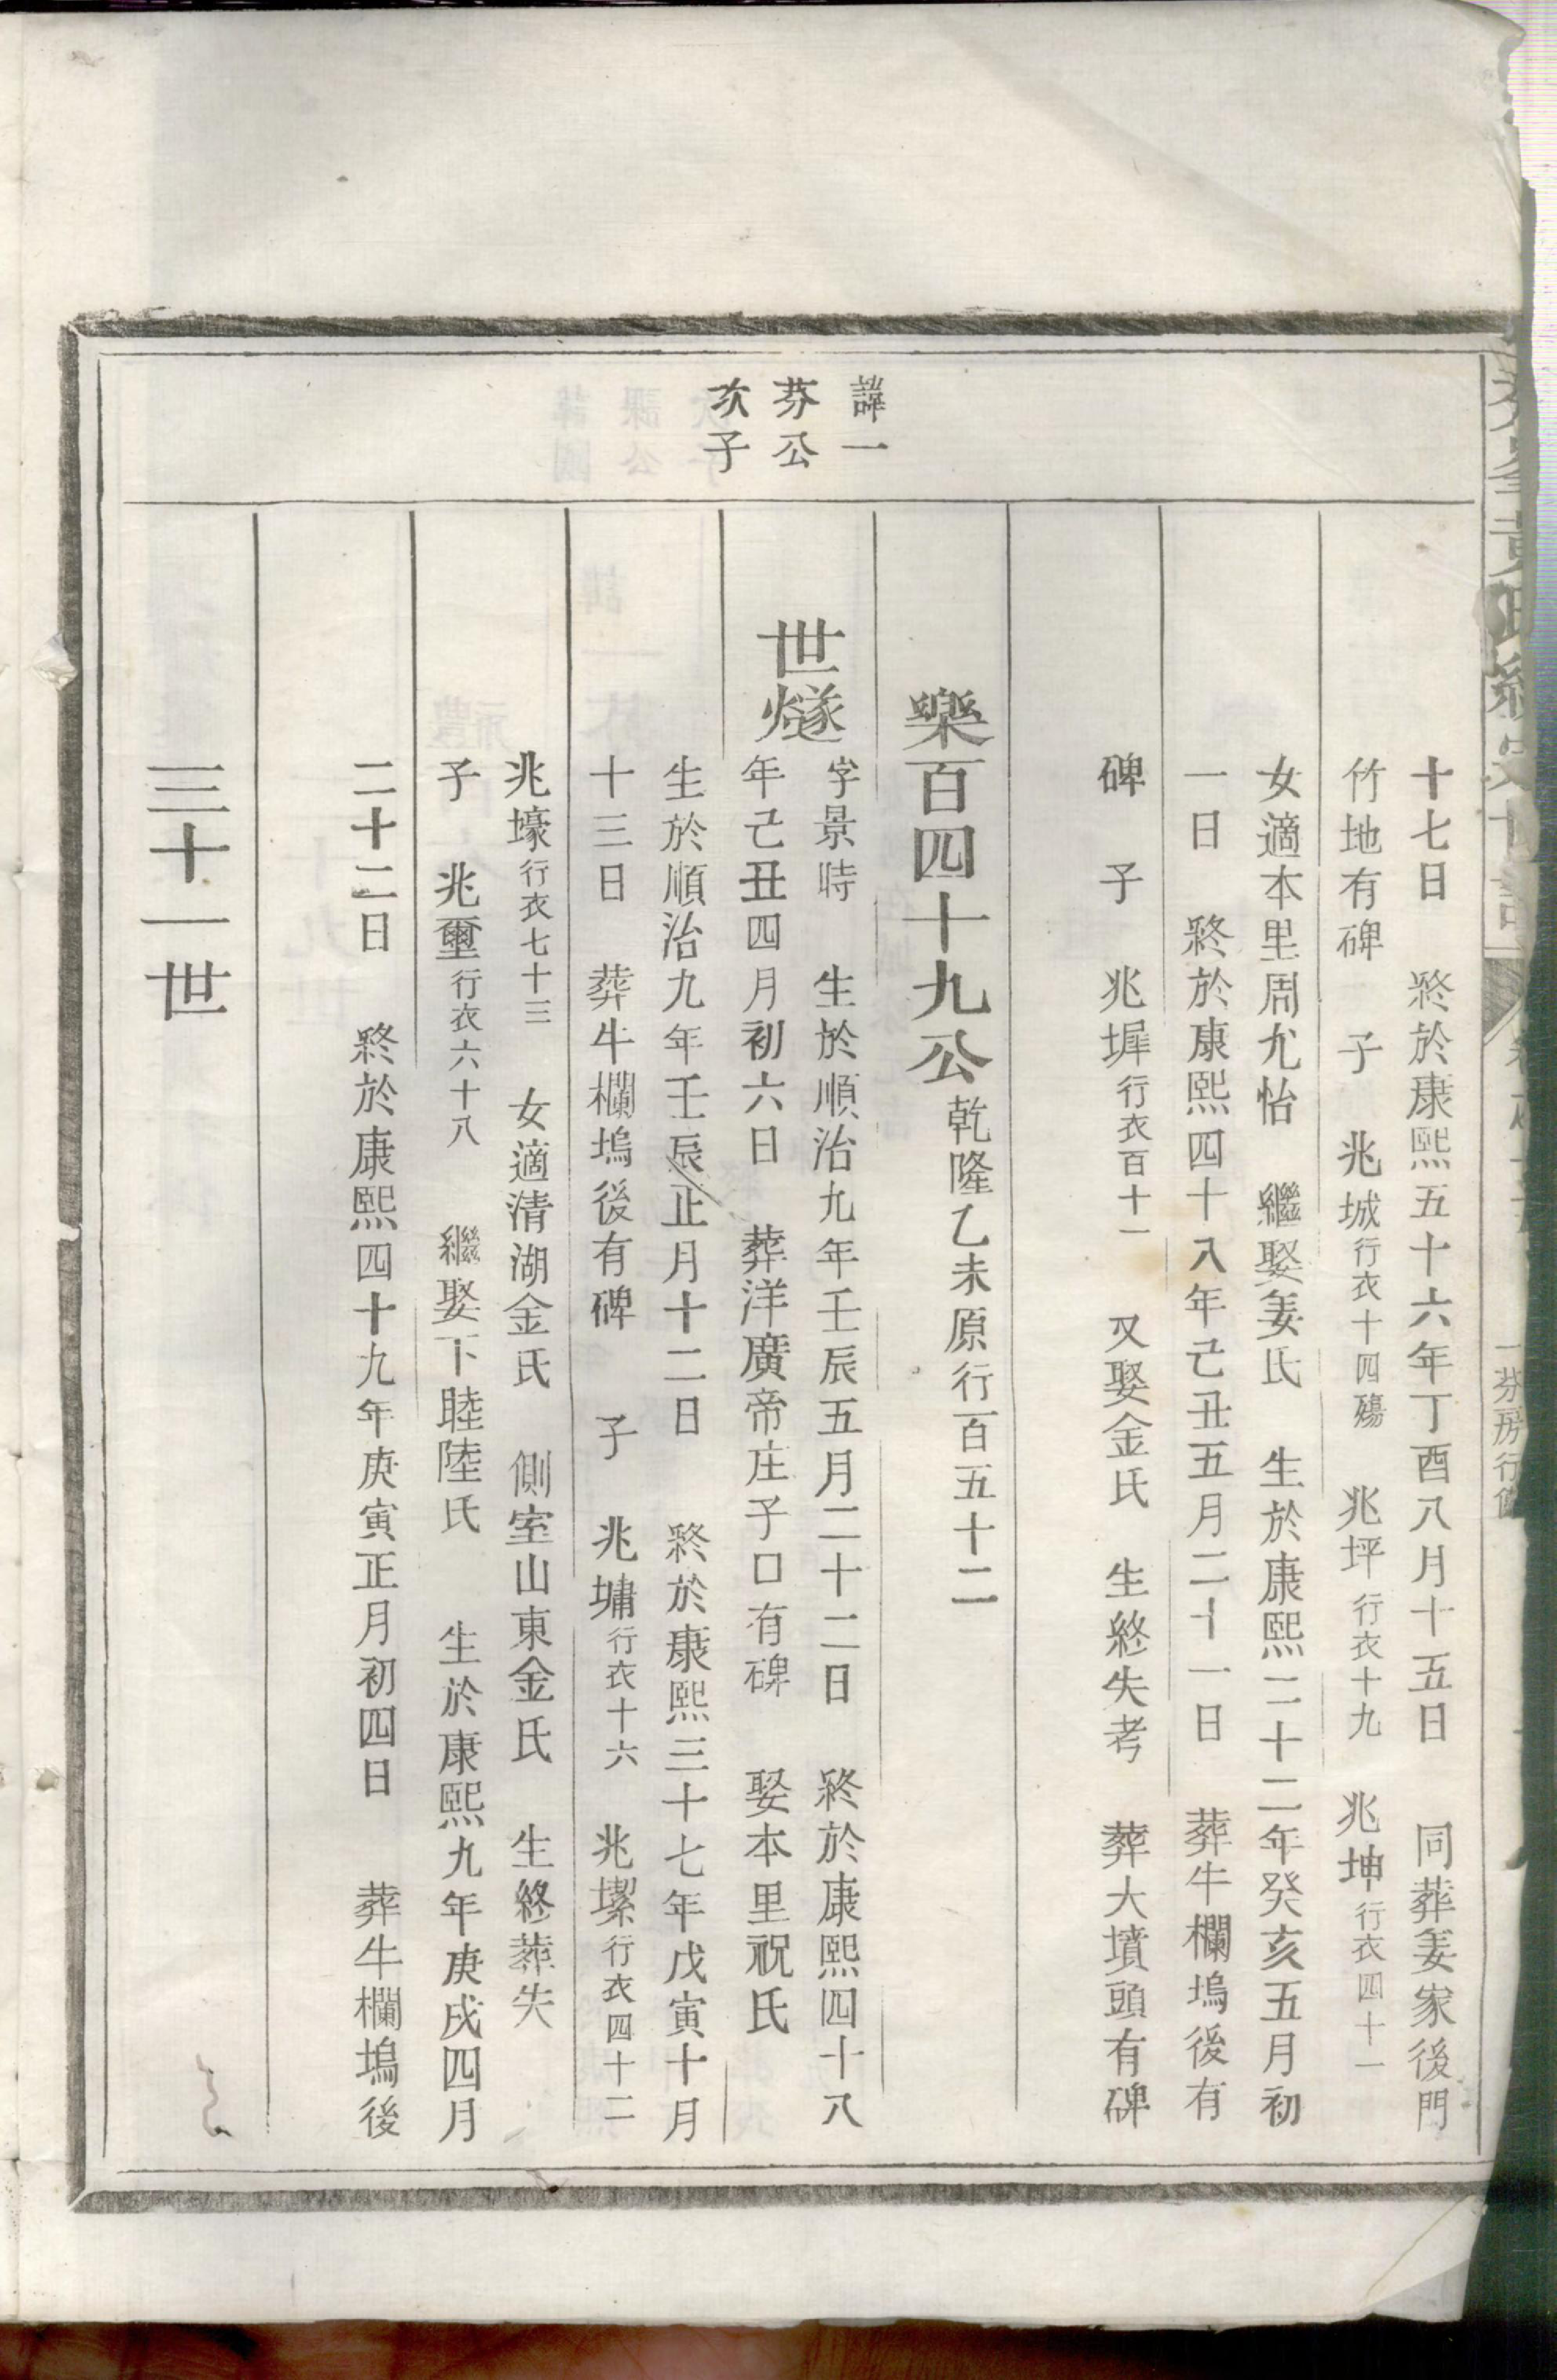 十七日　終於康熙五十六年丁酉八月十五日　同葬姜家後門
竹地有碑　子　兆城行衣十四殤　兆坪行衣十九　兆坤行衣四十一
女適本里周允怡　繼娶姜氏　生於康熙二十二年癸亥五月初
一日　終於康熙四十八年己丑五月二十一日　葬牛欄塢後有
碑　子　兆墀行衣百十一　又娶金氏　生終失考　葬大墳頭有碑
樂百四十九公乾隆乙未原行百五十二
諱一
芬公
次子
世燧
字景時　生於順治九年壬辰五月二十二日　終於康熙四十八
年己丑四月初六日　葬洋廣帝庄子口有碑　娶本里祝氏
生於順治九年壬辰正月十二日　終於康熙三十七年戊寅十月
十三日　葬牛欄塢後有碑　子　兆墉行衣十六　兆㙮行衣四十二
兆壕行衣七十三　女適清湖金氏　側室山東金氏　生終葬失
子　兆壐行衣六十八　繼娶下睦陸氏　生於康熙九年庚戌四月
二十二日　終於康熙四十九年庚寅正月初四日　葬牛欄塢後
三十一世
一芬房行